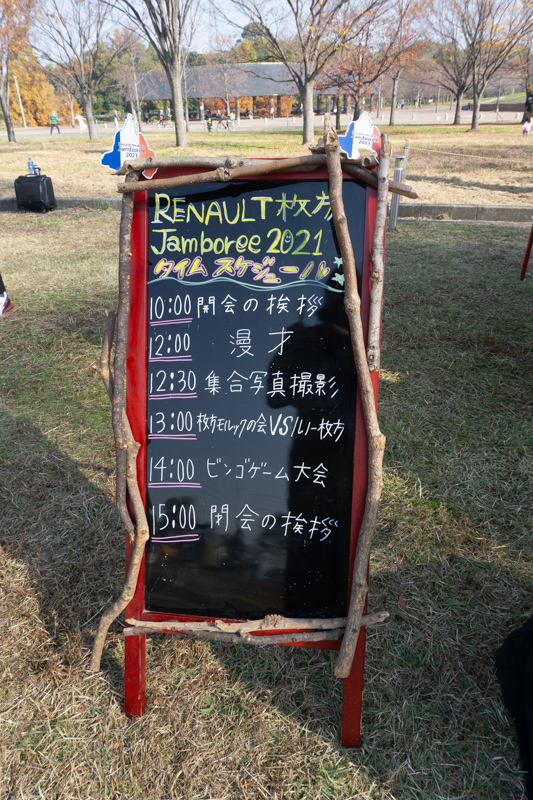 RENAULT 枚方
Jamboree 2021
タイム スケジュール
10:00 開会の挨拶
12:00 漫才
12:30 集合写真撮影
13:00 枚方モルックの会VSルノー枚方
14:00 ビンゴゲーム大会
15:00 閉会の挨拶
Jamboree
2021
Jamboree
2021